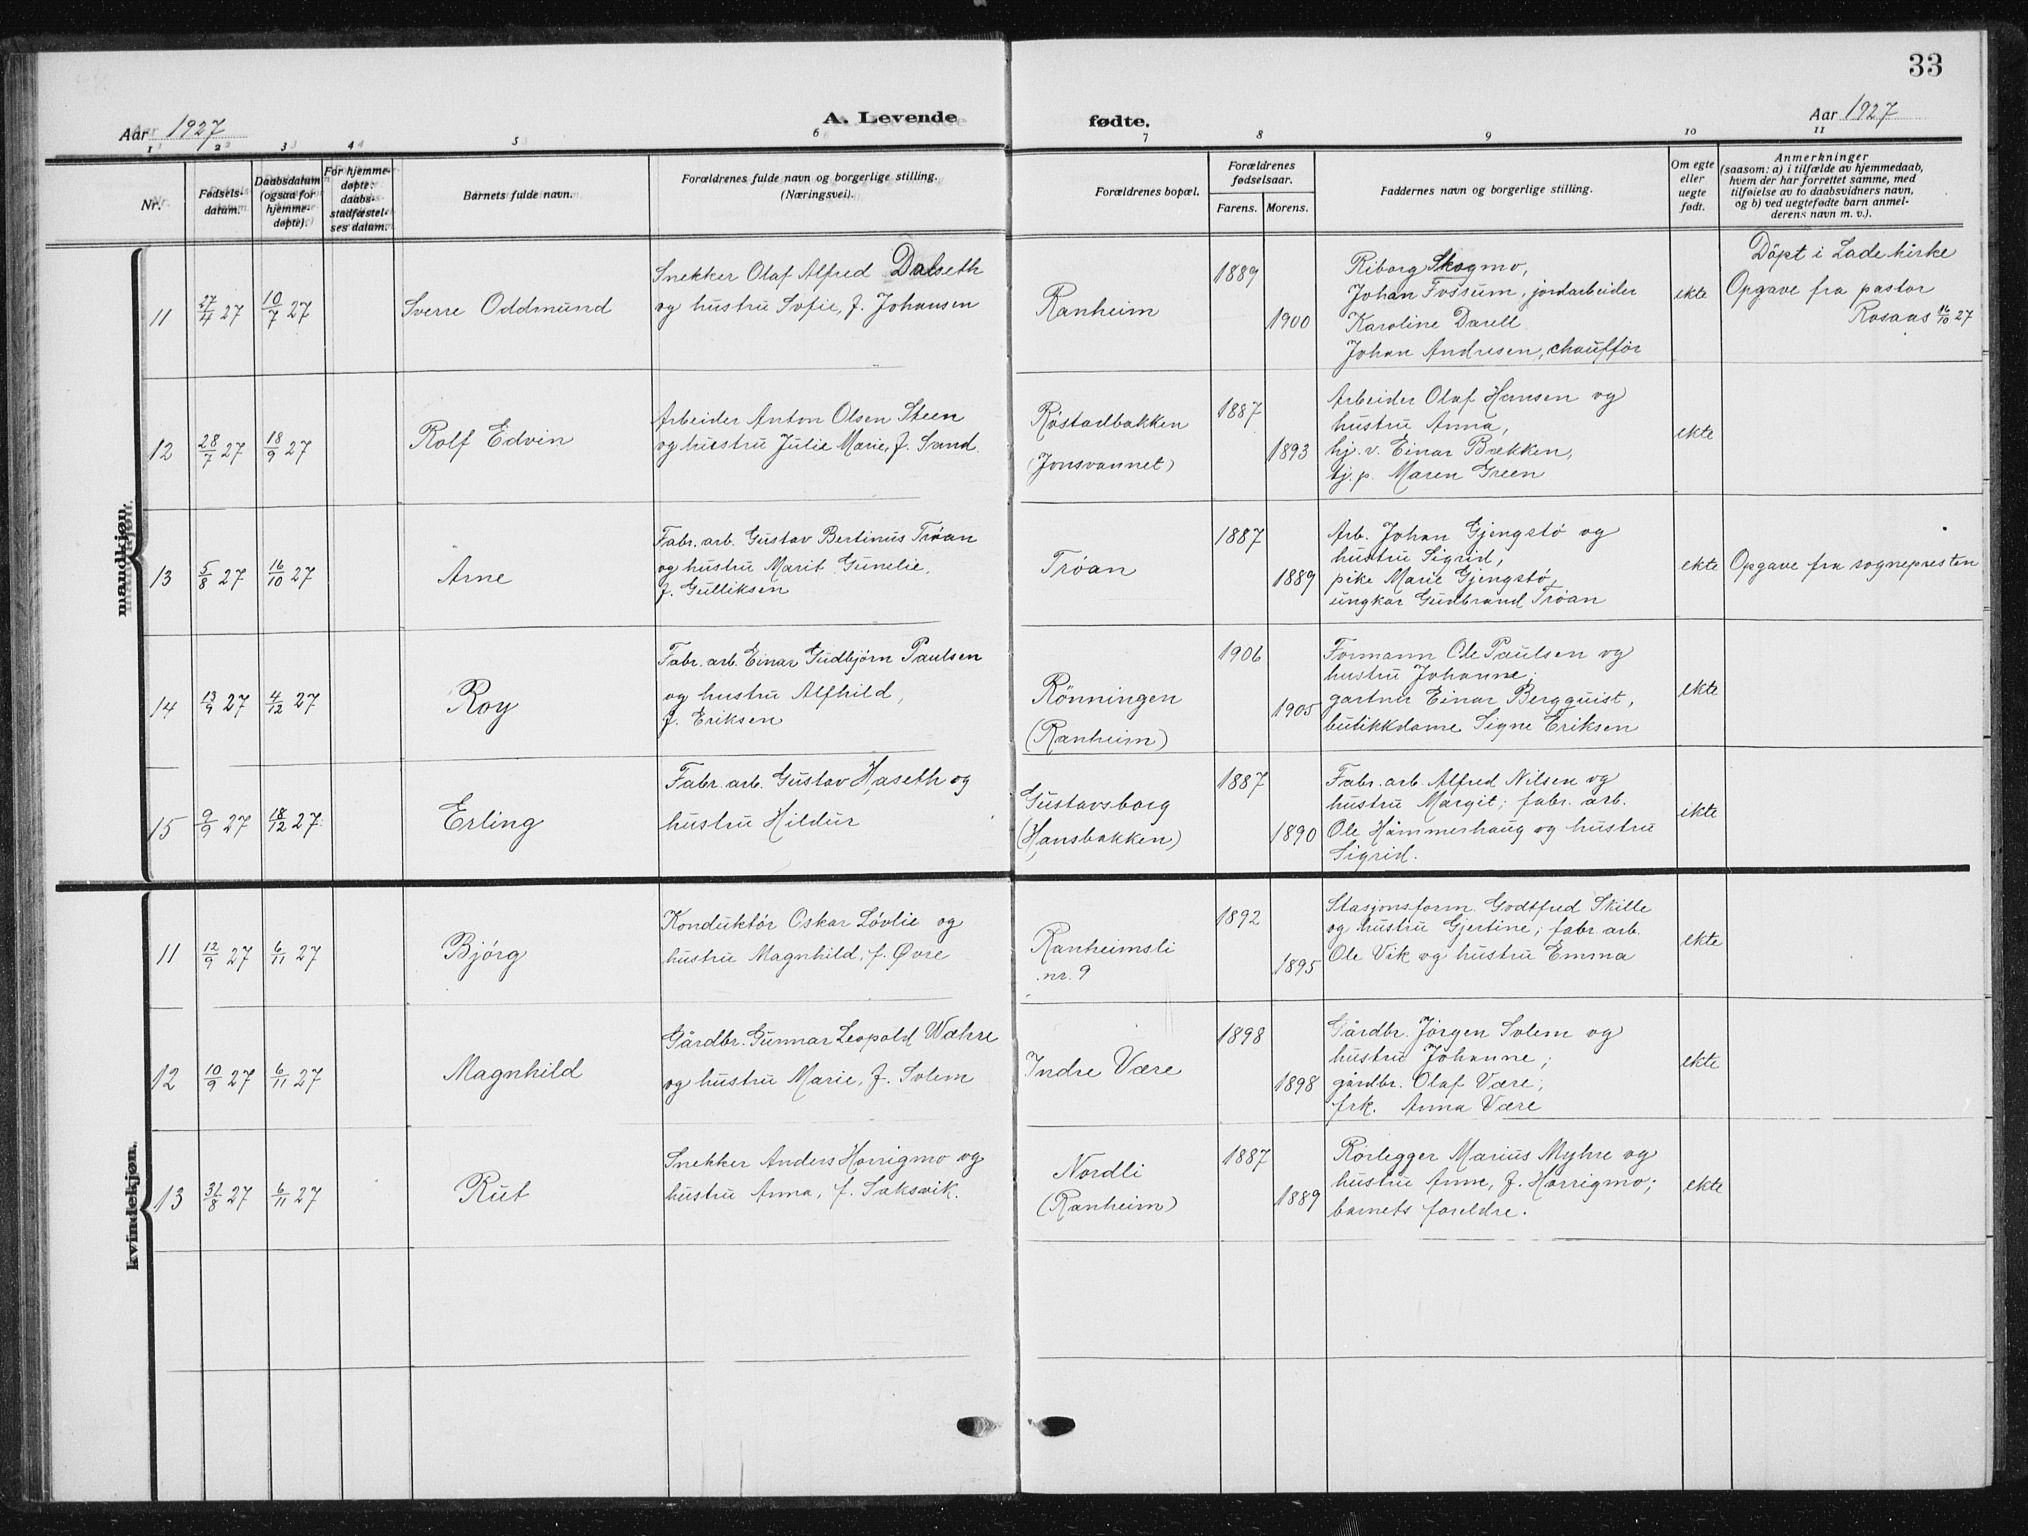 33
Aar 1927
A. Levende
fødte.
Aar 1927
1 2 3 4 5 6 7 8 9 10 11
Nr.
Fødsels-
datum.
Daabsdatum
(ogsaa for
hjemme-
døpte).
For hjemme-
døpte:
daabs-
stadfæstel-
ses datum.
Barnets fulde navn.
Forældrenes fulde navn og borgerlige stilling.
(Næringsvei).
Forældrenes bopæl.
Forældrenes
fødselsaar.
Farens. Morens.
Faddernes navn og borgerlige stilling.
Om egte
eller
uegte
født.
Anmerkninger
(saasom: a) i tilfælde av hjemmedaab,
hvem der har forrettet samme, med
tilføielse av to daabsvidners navn,
og b) ved uegtefødte barn anmel-
derens navn m. v.).
mandkjøn.
11
27/4 27
10/7 27
Sverre Oddmund
Snekker Olaf Alfred Dalseth
og hustru Sofie, f. Johansen
Ranheim
1889
1900
Riborg Skogmo,
Johan Fossum, jordarbeider
Karoline Darell
Johan Andresen, chauffør
ekte
Döpt i Lade kirke
Opgave fra pastor
Rosaas 16/10 27
12
28/7 27
18/9 27
Rolf Edvin
Arbeider Anton Olsen Steen
og hustru Julie Marie, f. Sand
Røstadbakken
(Jonsvannet)
1887
1893
Arbeider Olaf Hansen og
hustru Anna,
hj. v. Einar Bækken,
tj. p. Maren Green
ekte
13
5/8 27
16/10 27
Arne
Fabr. arb. Gustav Bertinus Trøan
og hustru Marit Gunelie,
f. Gulliksen
Trøan
1887
1889
Arb. Johan Gjengstø og
hustru Sigrid,
pike Marie Gjengstø,
ungkar Gudbrand Trøan
ekte
Opgave fra sognepresten
14
13/9 27
4/12 27
Roy
Fabr. arb. Einar Gudbjørn Paulsen
og hustru Alfhild,
f. Eriksen
Rönningen
(Ranheim)
1906
1905
Formann Ole Paulsen og
hustru Johanne;
gartner Einar Bergquist,
butikkdame Signe Eriksen
ekte
15
9/9 27
18/12 27
Erling
Fabr. arb. Gustav Haseth og
hustru Hildur
Gustavsborg
(Hansbakken)
1887
1890
Fabr. arb. Alfred Nilsen og
hustru Margit; fabr. arb.
Ole Hammerhaug og hustru
Sigrid.
ekte
kvindekjøn.
11
12/9 27
6/11 27
Bjørg
Konduktör Oskar Løvlie og
hustru Magnhild, f. Øvre
Ranheimsli
nr. 9
1892
1895
Stasjonsform. Godtfred Skille
og hustru Gjertine; fabr. arb.
Ole Vik og hustru Emma
ekte
12
10/9 27
6/11 27
Magnhild
Gårdbr. Gunnar Leopold Wæhre
og hustru Marie, f. Solem
Indre Være
1898
1898
Gårdbr. Jörgen Solem og
hustru Johanne;
gårdbr. Olaf Være;
frk. Anna Være
ekte
13
31/8 27
6/11 27
Rut
Snekker Anders Horrigmo og
hustru Anna, f. Saksvik.
Nordli
(Ranheim)
1887
1889
Rørlegger Marius Myhre og
hustru Anne, f. Horrigmo;
barnets foreldre.
ekte